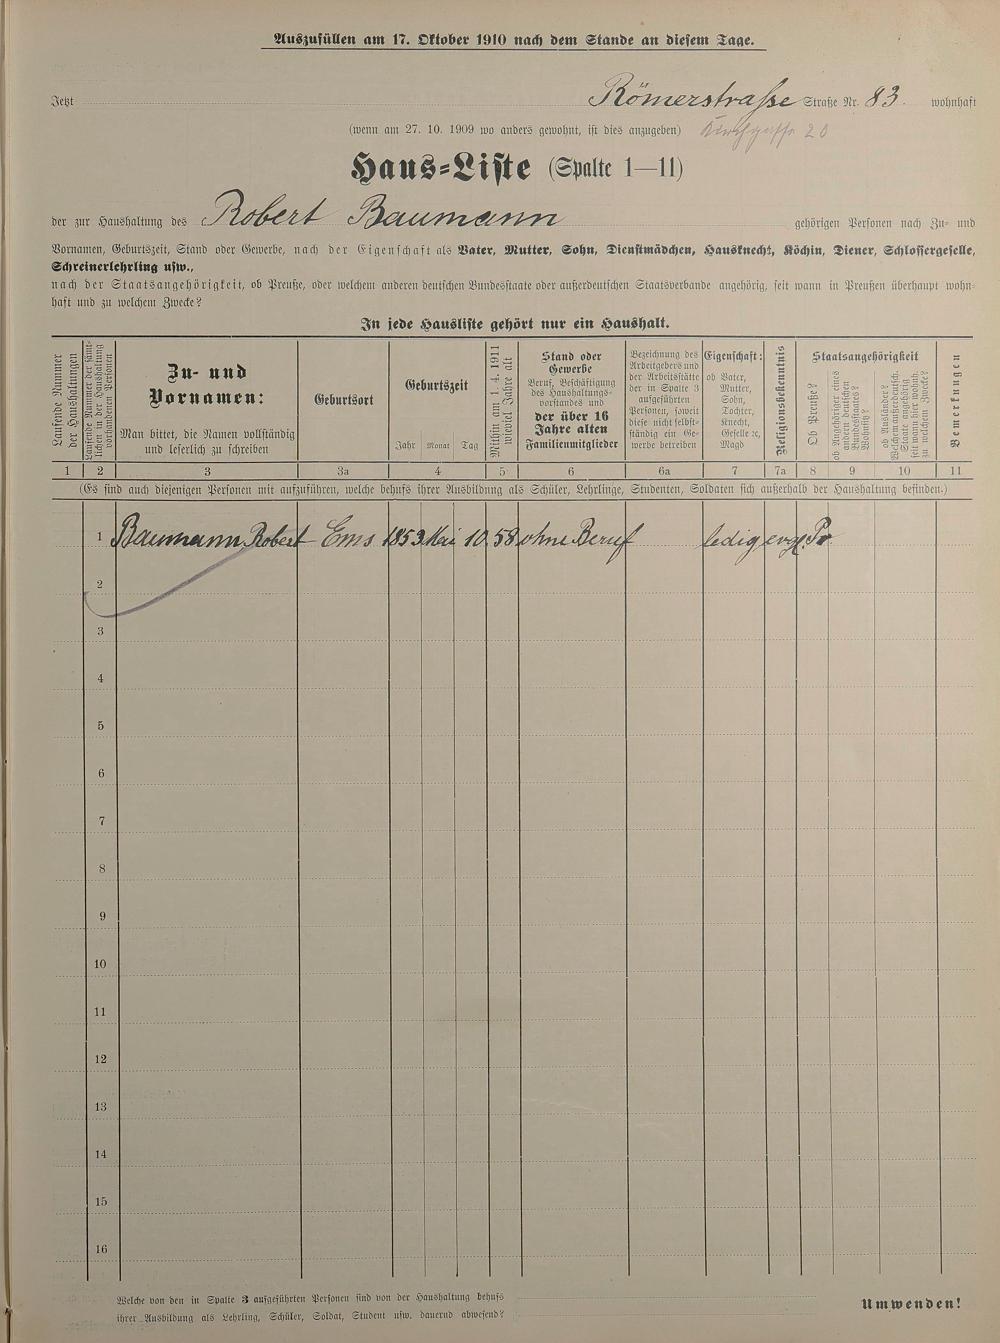 Auszufüllen am 17. Oktober 1910 nach dem Stande an diesem Tage.
Jetzt Römerstraße Straße Nr. 83. wohnhaft
(wenn am 27. 10. 1909 wo anders gewohnt, ist dies anzugeben) Kirchgasse 20
Haus-Liste (Spalte 1—11)
der zur Haushaltung des Robert Baumann gehörigen Personen nach Zu- und
Vornamen, Geburtszeit, Stand oder Gewerbe, nach der Eigenschaft als Vater, Mutter, Sohn, Dienstmädchen, Hausknecht, Köchin, Diener, Schlossergeselle,
Schreinerlehrling usw.,
nach der Staatsangehörigkeit, ob Preuße, oder welchem anderen deutschen Bundesstaate oder außerdeutschen Staatsverbande angehörig, seit wann in Preußen überhaupt wohn-
haft und zu welchem Zwecke?
In jede Hausliste gehört nur ein Haushalt.
Laufende Nummer
der Haushaltungen
Laufende Nummer der sämt-
lichen in der Haushaltung
vorhandenen Personen
Zu- und
Vornamen:
Man bittet, die Namen vollständig
und leserlich zu schreiben
Geburtsort
Geburtszeit
Jahr Monat Tag
Mithin am 1. 4. 1911
wieviel Jahre alt
Stand oder
Gewerbe
Beruf, Beschäftigung
des Haushaltungs-
vorstandes und
der über 16
Jahre alten
Familienmitglieder
Bezeichnung des
Arbeitgebers und
der Arbeitsstätte
der in Spalte 3
aufgeführten
Personen, soweit
diese nicht selbst-
ständig ein Ge-
werbe betreiben
Eigenschaft:
ob Vater,
Mutter,
Sohn,
Tochter,
Knecht,
Geselle ꝛc,
Magd
Religionsbekenntnis
Staatsangehörigkeit
Ob Preuße?
ob Angehöriger eines
andern deutschen
Bundesstaates?
Wohnsitz?
ob Ausländer?
Welchem außerdeutsch.
Staate angehörig
seit wann hier wohnh.
zu welchem Zwecke?
Bemerkungen
1 2 3 3a 4 5 6 6a 7 7a 8 9 10 11
(Es sind auch diejenigen Personen mit aufzuführen, welche behufs ihrer Ausbildung als Schüler, Lehrlinge, Studenten, Soldaten sich außerhalb der Haushaltung befinden.)
1 Baumann Robert Ems 1853 Mai 10. 58 ohne Beruf ledig evgl. Pr
2
3
4
5
6
7
8
9
10
11
12
13
14
15
16
Welche von den in Spalte 3 aufgeführten Personen sind von der Haushaltung behufs
ihrer Ausbildung als Lehrling, Schüler, Soldat, Student usw. dauernd abwesend?
Umwenden!